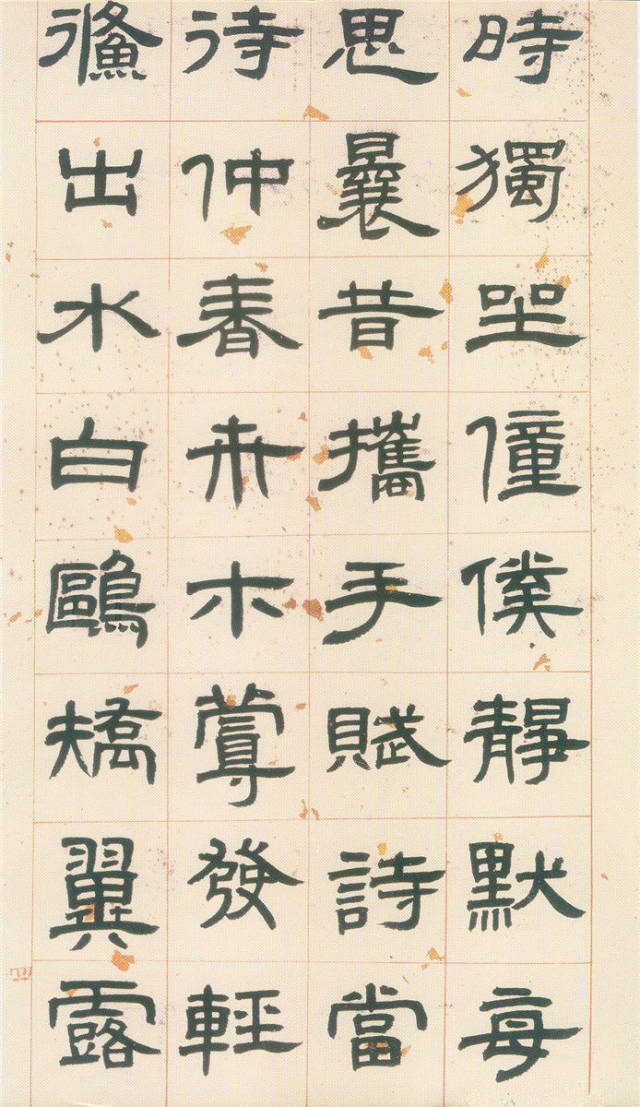 時獨坐僮僕靜默每
思曩昔攜手賦詩當
待仲春卉木蔓發輕
鯈出水白鷗矯翼露